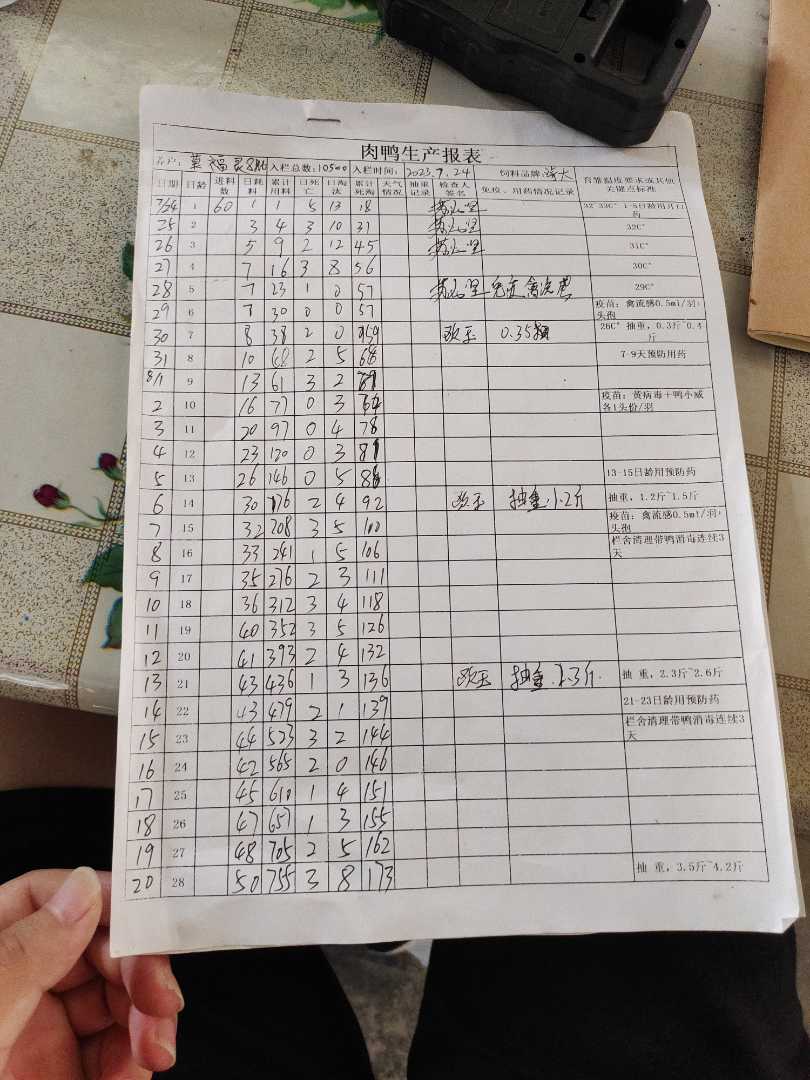 肉鸭生产报表
入栏总数:10500 入栏时间:2023.7.24 饲料品牌
日期 日龄 进料数 日耗料 累计用料 日死亡 日淘汰 累计死淘 天气情况 抽重记录 检查人签名 免疫、用药情况记录 育雏温度要求或其他关键点标准
7/24 1 60 1 1 5 13 18 32~33C° 1-5日龄用开口药
25 2 3 4 3 10 31 32C°
26 3 5 9 2 12 45 31C°
27 4 7 16 3 8 56 30C°
28 5 7 23 1 0 57 免疫禽流感 29C°
29 6 7 30 0 0 57 疫苗：禽流感0.5ml/羽；头孢
30 7 8 38 2 0 59 0.35 26C° 抽重，0.3斤~0.4斤
31 8 10 68 2 5 7-9天预防用药
8/1 9 13 61 3 2
2 10 16 77 0 3 疫苗：黄病毒+鸭小威各1头份/羽
3 11 20 97 0 4 78
4 12 23 120 0 3 81
5 13 26 146 0 5 86 13-15日龄用预防药
6 14 30 176 2 4 92 抽重 1.2斤 抽重，1.2斤~1.5斤
7 15 32 208 3 5 100 疫苗：禽流感0.5ml/羽；头孢
8 16 33 241 1 5 106 栏舍清理带鸭消毒连续3天
9 17 35 276 2 3 111
10 18 36 312 3 4 118
11 19 40 352 3 5 126
12 20 41 393 2 4 132
13 21 43 436 1 3 136 抽重 抽 重，2.3斤~2.6斤
14 22 43 479 2 1 139 21-23日龄用预防药
15 23 44 523 3 2 144 栏舍清理带鸭消毒连续3天
16 24 42 565 2 0 146
17 25 45 610 1 4 151
18 26 47 657 1 3 155
19 27 48 705 2 5 162
20 28 50 755 3 8 173 抽 重，3.5斤~4.2斤